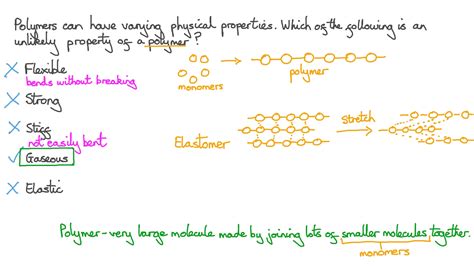 Polymers can have varying physical properties. Which of the following is an
unlikely property of a polymer?
Flexible
bends without breaking
monomers
polymer
Strong
Stiff
not easily bent
Elastomer
Stretch
Gaseous
Elastic
Polymer - very large molecule made by joining lots of smaller molecules together.
monomers